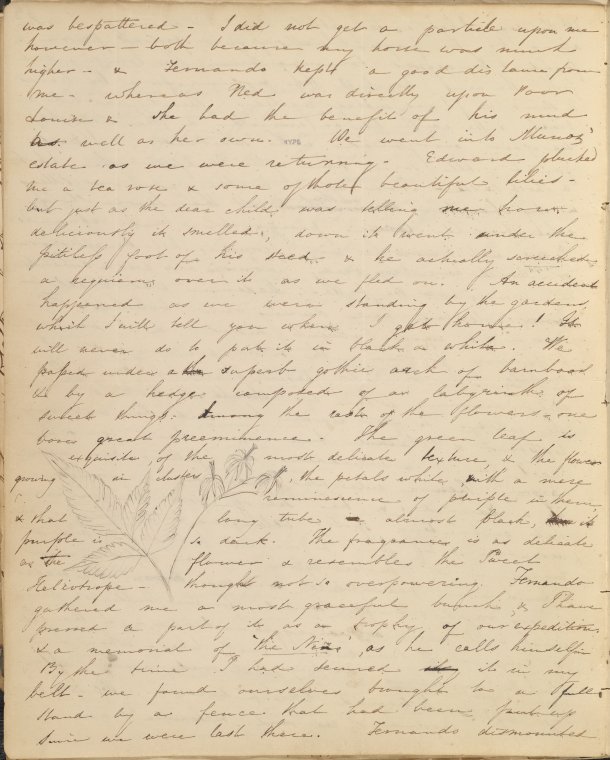 was bespattered - I did not get a particle upon me
however - both because my horse was much
higher - & Fernando kept a good distance from
me - whereas Ned was directly upon poor
Louisa & she had the benefit of his mud
as well as her own. We went into Munoz'
estate as we were returning. Edward plucked
me a tea rose & some of those beautiful lilies -
but just as the dear child was telling me how
deliciously it smelled, down it went under the
pitiless foot of his steed, & he actually
a requiem over it as we fled on. An accident
happened as we were standing by the gardens,
which I will tell you when I get home! It
will never do to put it in black & white. We
passed under a superb gothic arch of bamboos
& by a hedge composed of a labyrinth of
sweet things. Among the rest of the flowers one
bore great preeminence. The green leaf is
exquisite of the most delicate texture, & the flower
growing in clusters, the petals white with a mere
reminiscence of purple in them
& that long tube almost black, it is
purple is so dark. The fragrance is as delicate
as the flower & resembles the Sweet
Heliotrope - though not so overpowering. Fernando
gathered me a most graceful bunch, & I have
pressed a part of it as a trophy of our expedition
& a memorial of "the", as he calls himself
By the time I had secured it in my
belt - we found ourselves brought to a full
stand by a fence that had been put up
since we were last there. Fernando dismounted